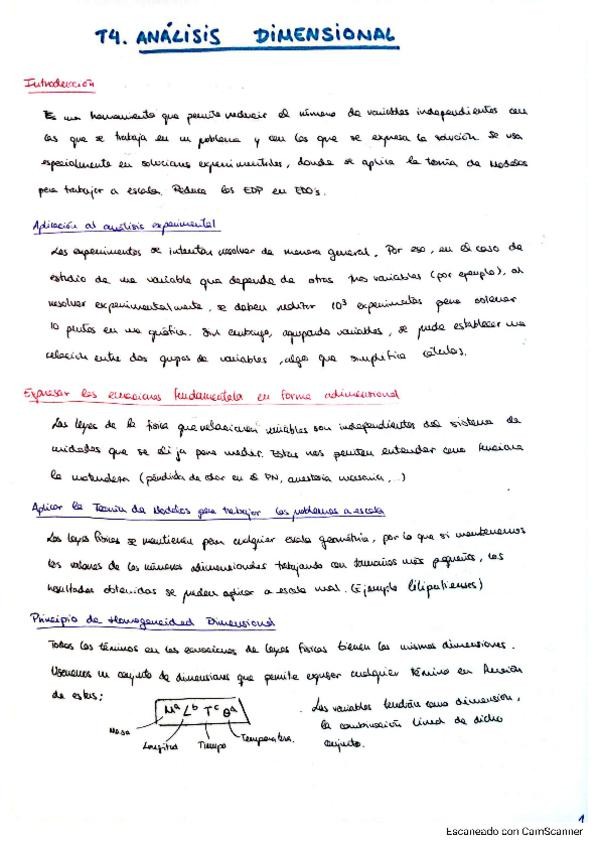 T4. ANÁLISIS DIMENSIONAL
Introducción
Es una herramienta que permite reducir el número de variables independientes con
las que se trabaja en un problema y con las que se expresa la solución. Se usa
especialmente en soluciones experimentales, donde se aplica la teoría de Modelos
para trabajar a escala. Reduce las EDP en EDO's.
Aplicación al análisis experimental
Los experimentos se intentan resolver de manera general. Por eso, en el caso de
estudio de una variable que dependa de otras tres variables (por ejemplo), al
resolver experimentalmente, se deben realizar 10³ experimentos para obtener
10 puntos en una gráfica. Sin embargo, agrupando variables, se puede establecer una
relación entre dos grupos de variables, algo que simplifica cálculos.
Expresar las ecuaciones fundamentales en forma adimensional
Las leyes de la física que relacionan variables son independientes del sistema de
unidades que se elija para medir. Estas nos permiten entender como funciona
la naturaleza (pérdida de calor en el PN, anestesia, ...)
Aplicar la Teoría de Modelos para trabajar los problemas a escala
Las leyes físicas se mantienen para cualquier escala geométrica, por lo que si mantenemos
los valores de los números adimensionales trabajando con tamaños más pequeños, los
resultados obtenidos se pueden aplicar a escala real. (Ejemplo liliputienses)
Principio de Homogeneidad Dimensional
Todos los términos en las ecuaciones de leyes físicas tienen las mismas dimensiones.
Usaremos un conjunto de dimensiones que permite expresar cualquier término en función
de estas:
Mᵃ Lᵇ Tᶜ θᵈ
Masa Longitud Tiempo Temperatura.
Las variables tendrán como dimensión,
la combinación lineal de dicho
conjunto.
1
Escaneado con CamScanner